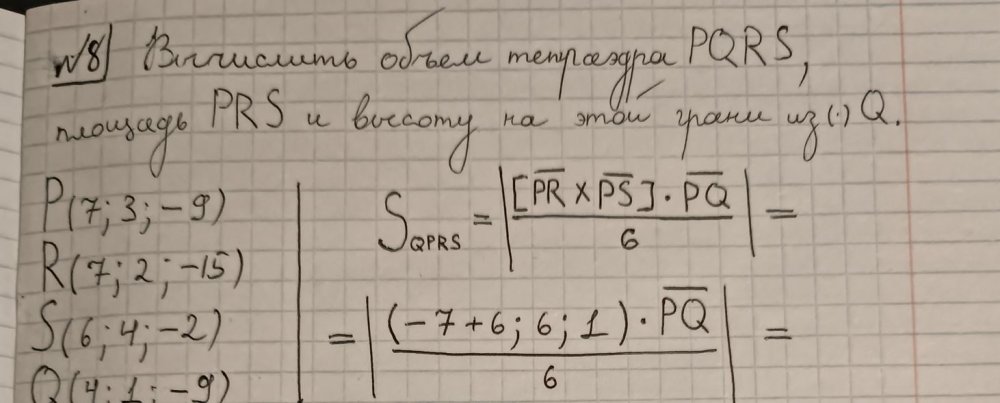 №8 Вычислить объем тетраэдра PQRS,
площадь PRS и высоту на этой грани из (·) Q.
P(7; 3; -9)
R(7; 2; -15)
S(6; 4; -2)
Q(4; 1; -9)
S_QPRS = |([PR × PS] · PQ)/6| =
= |((-7+6; 6; 1) · PQ)/6| =